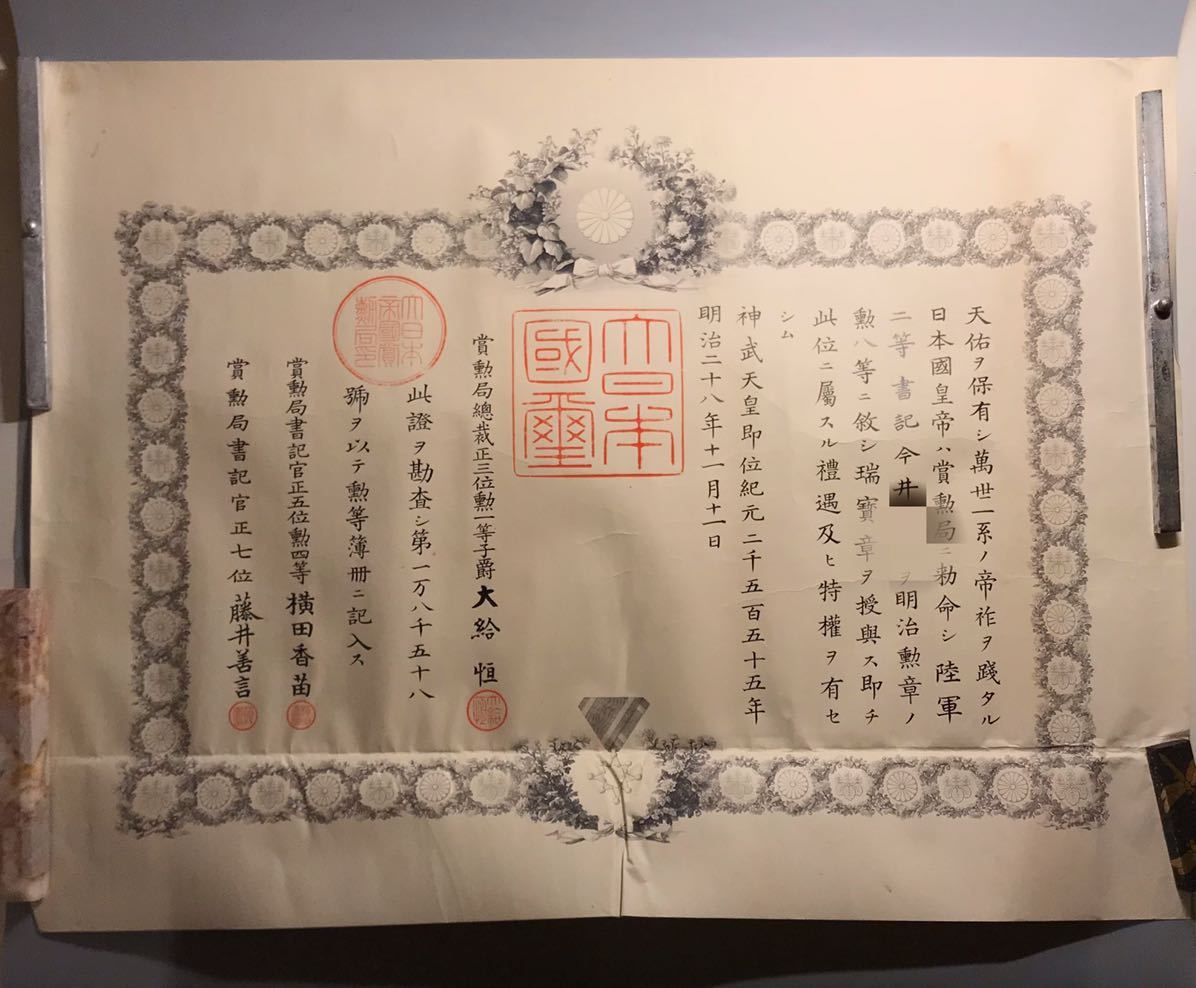 天佑ヲ保有シ萬世一系ノ帝祚ヲ踐タル
日本國皇帝ハ賞勲局ニ勅命シ陸軍
二等書記今井 ヲ明治勲章ノ
勲八等ニ敘シ瑞寶章ヲ授與ス即チ
此位ニ屬スル禮遇及ヒ特權ヲ有セ
シム
神武天皇即位紀元二千五百五十五年
明治二十八年十一月十一日
大日本
國璽
賞勲局總裁正三位勲一等子爵大給恒
此證ヲ勘査シ第一万八千五十八
號ヲ以テ勲等簿冊ニ記入ス
賞勲局書記官正五位勲四等橫田香苗
賞勲局書記官正七位藤井善言